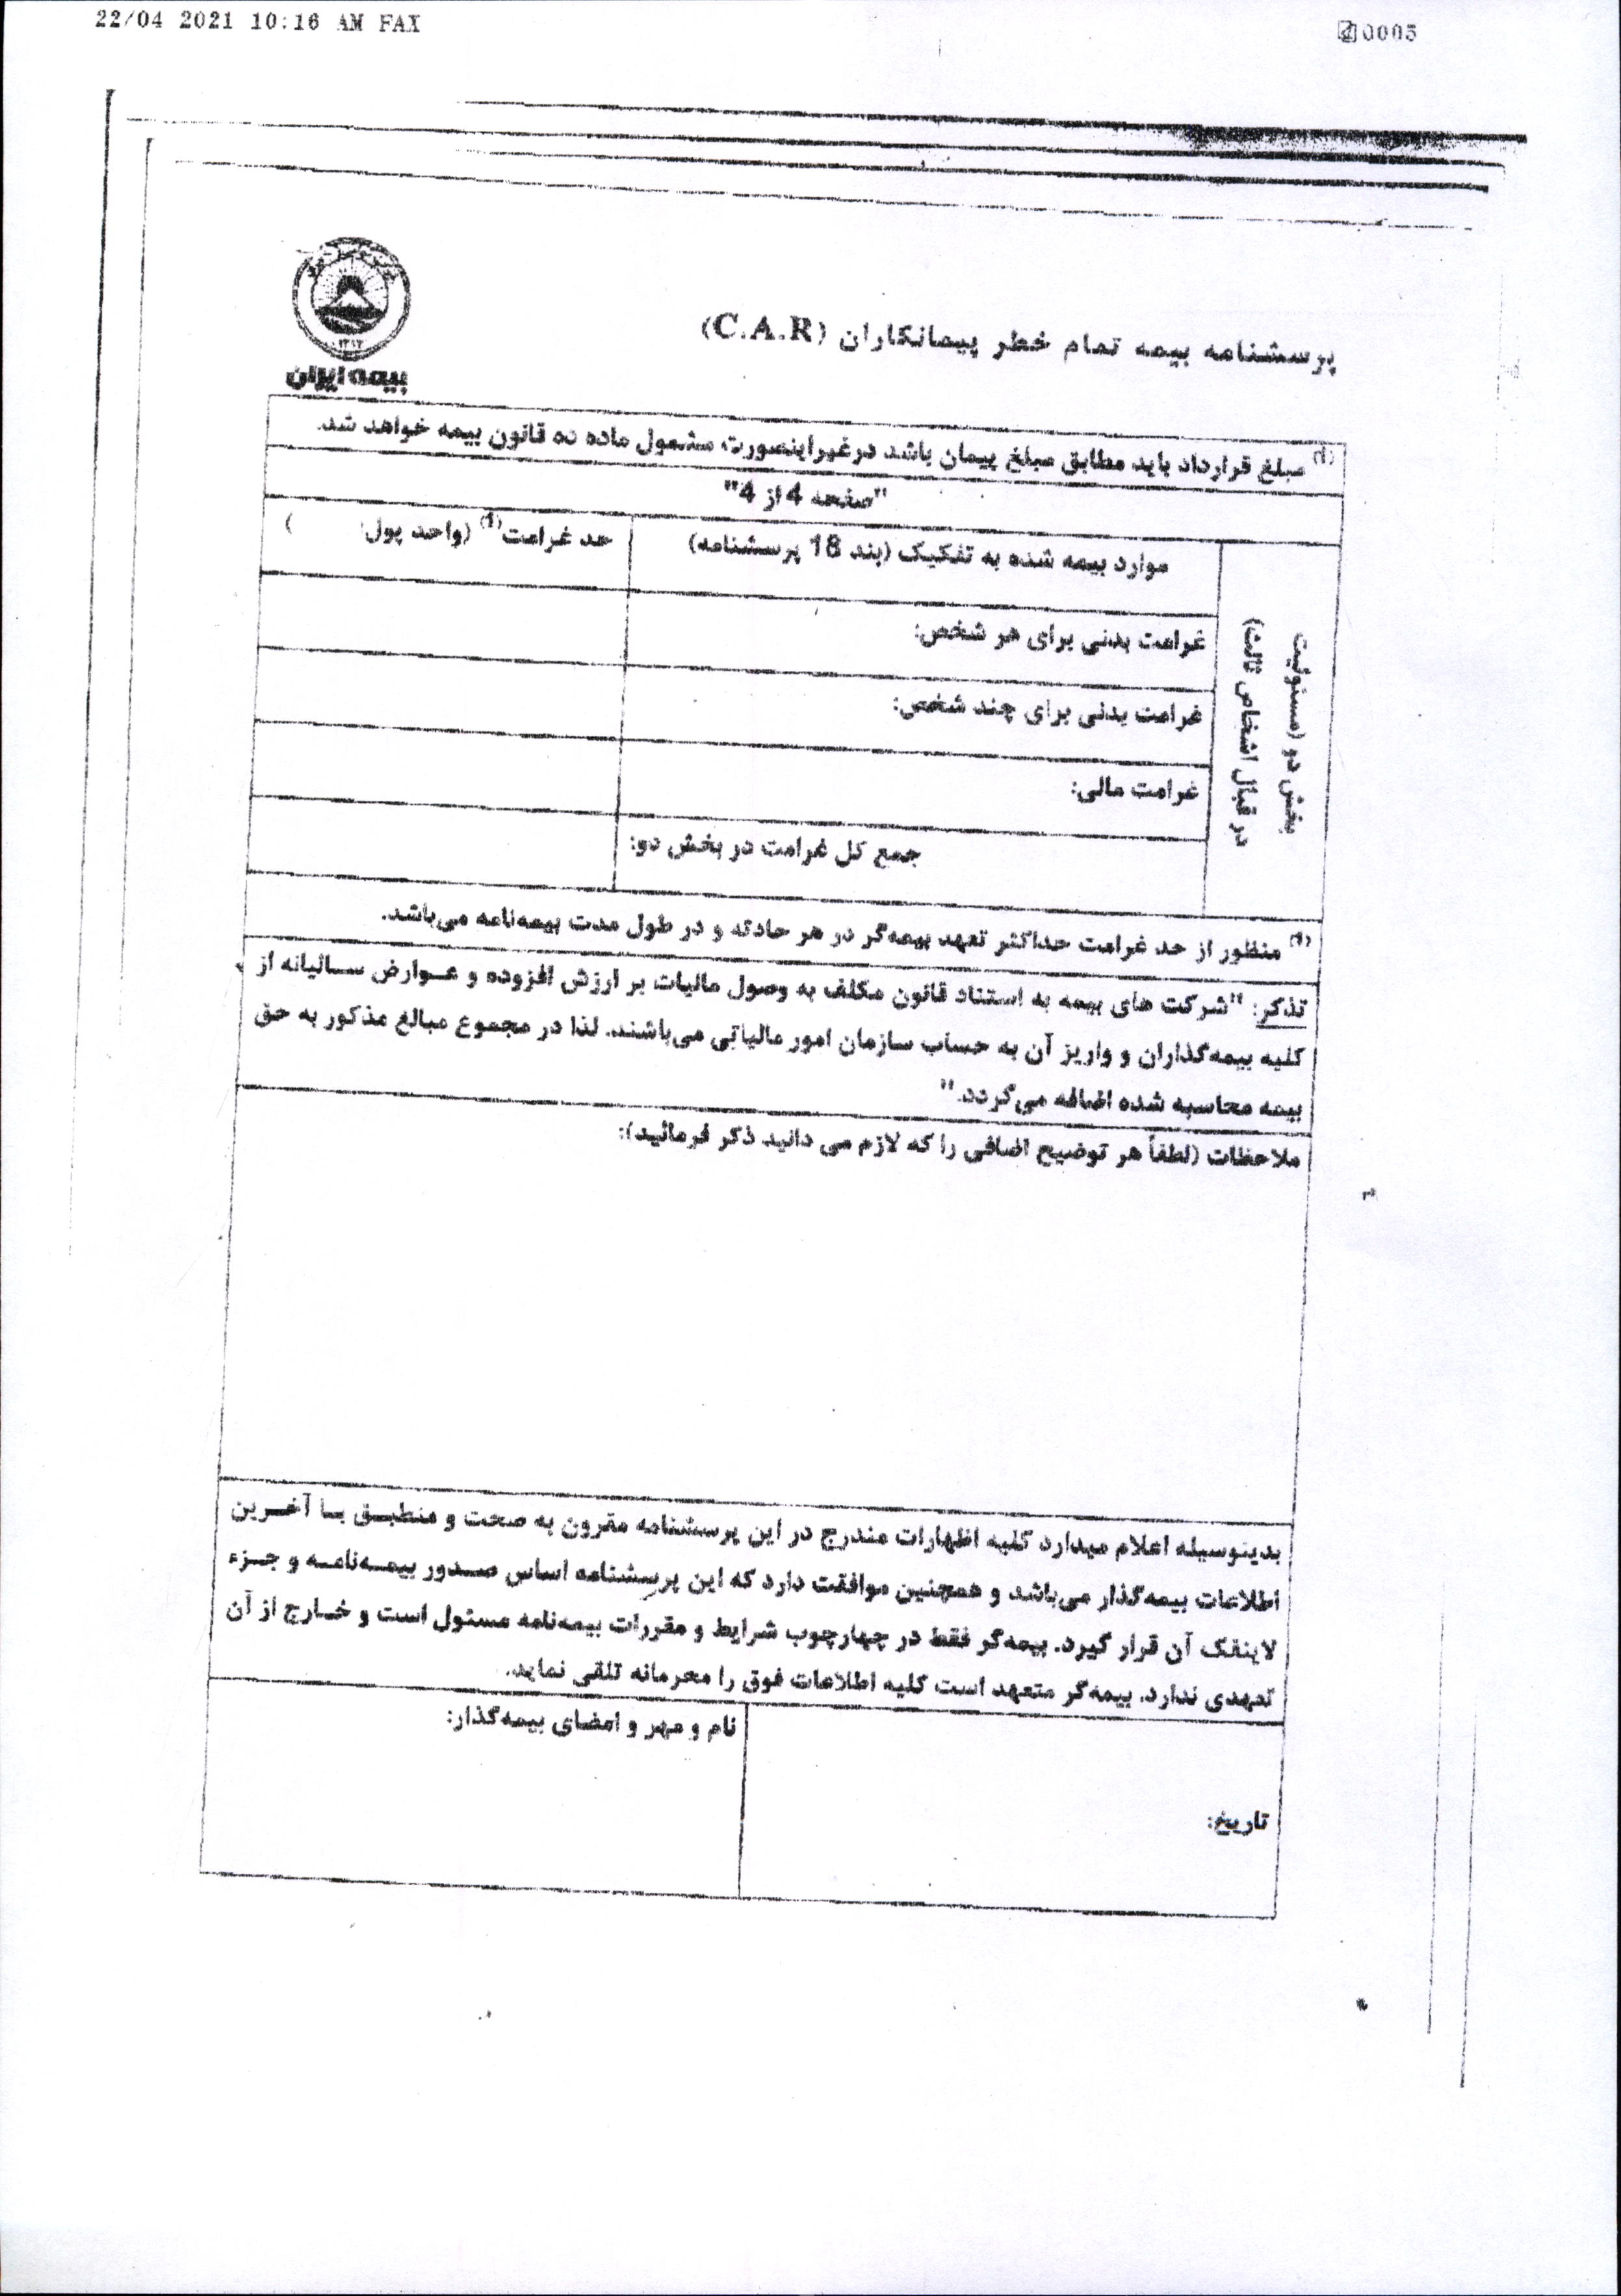 22/04 2021 10:16 AM FAX
0005
۱۳۱۴
بیمه ایران
پرسشنامه بیمه تمام خطر پیمانکاران (C.A.R)
(1) مبلغ قرارداد باید مطابق مبلغ پیمان باشد درغیراینصورت مشمول ماده ده قانون بیمه خواهد شد.
"صفحه 4 از 4"
بخش دو (مسئولیت
در قبال اشخاص ثالث)
موارد بیمه شده به تفکیک (بند 18 پرسشنامه)
حد غرامت(1) (واحد پول: )
غرامت بدنی برای هر شخص:
غرامت بدنی برای چند شخص:
غرامت مالی:
جمع کل غرامت در بخش دو:
(1) منظور از حد غرامت حداکثر تعهد بیمه‌گر در هر حادثه و در طول مدت بیمه‌نامه می‌باشد.
تذکر: "شرکت های بیمه به استناد قانون مکلف به وصول مالیات بر ارزش افزوده و عـوارض سـالیانه از
کلیه بیمه‌گذاران و واریز آن به حساب سازمان امور مالیاتی می‌باشند. لذا در مجموع مبالغ مذکور به حق
بیمه محاسبه شده اضافه می‌گردد."
ملاحظات (لطفاً هر توضیح اضافی را که لازم می دانید ذکر فرمائید):
بدینوسیله اعلام میدارد کلیه اظهارات مندرج در این پرسشنامه مقرون به صحت و منطبـق بـا آخـرین
اطلاعات بیمه‌گذار می‌باشد و همچنین موافقت دارد که این پرسشنامه اساس صـدور بیمـه‌نامـه و جـزء
لاینفک آن قرار گیرد. بیمه‌گر فقط در چهارچوب شرایط و مقررات بیمه‌نامه مسئول است و خـارج از آن
تعهدی ندارد. بیمه‌گر متعهد است کلیه اطلاعات فوق را محرمانه تلقی نماید.
نام و مهر و امضای بیمه‌گذار:
تاریخ: